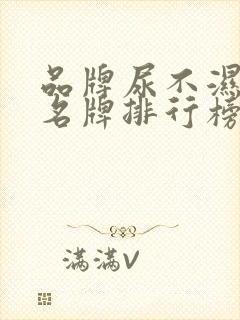 品牌尿不濕
名牌排行榜
满满V